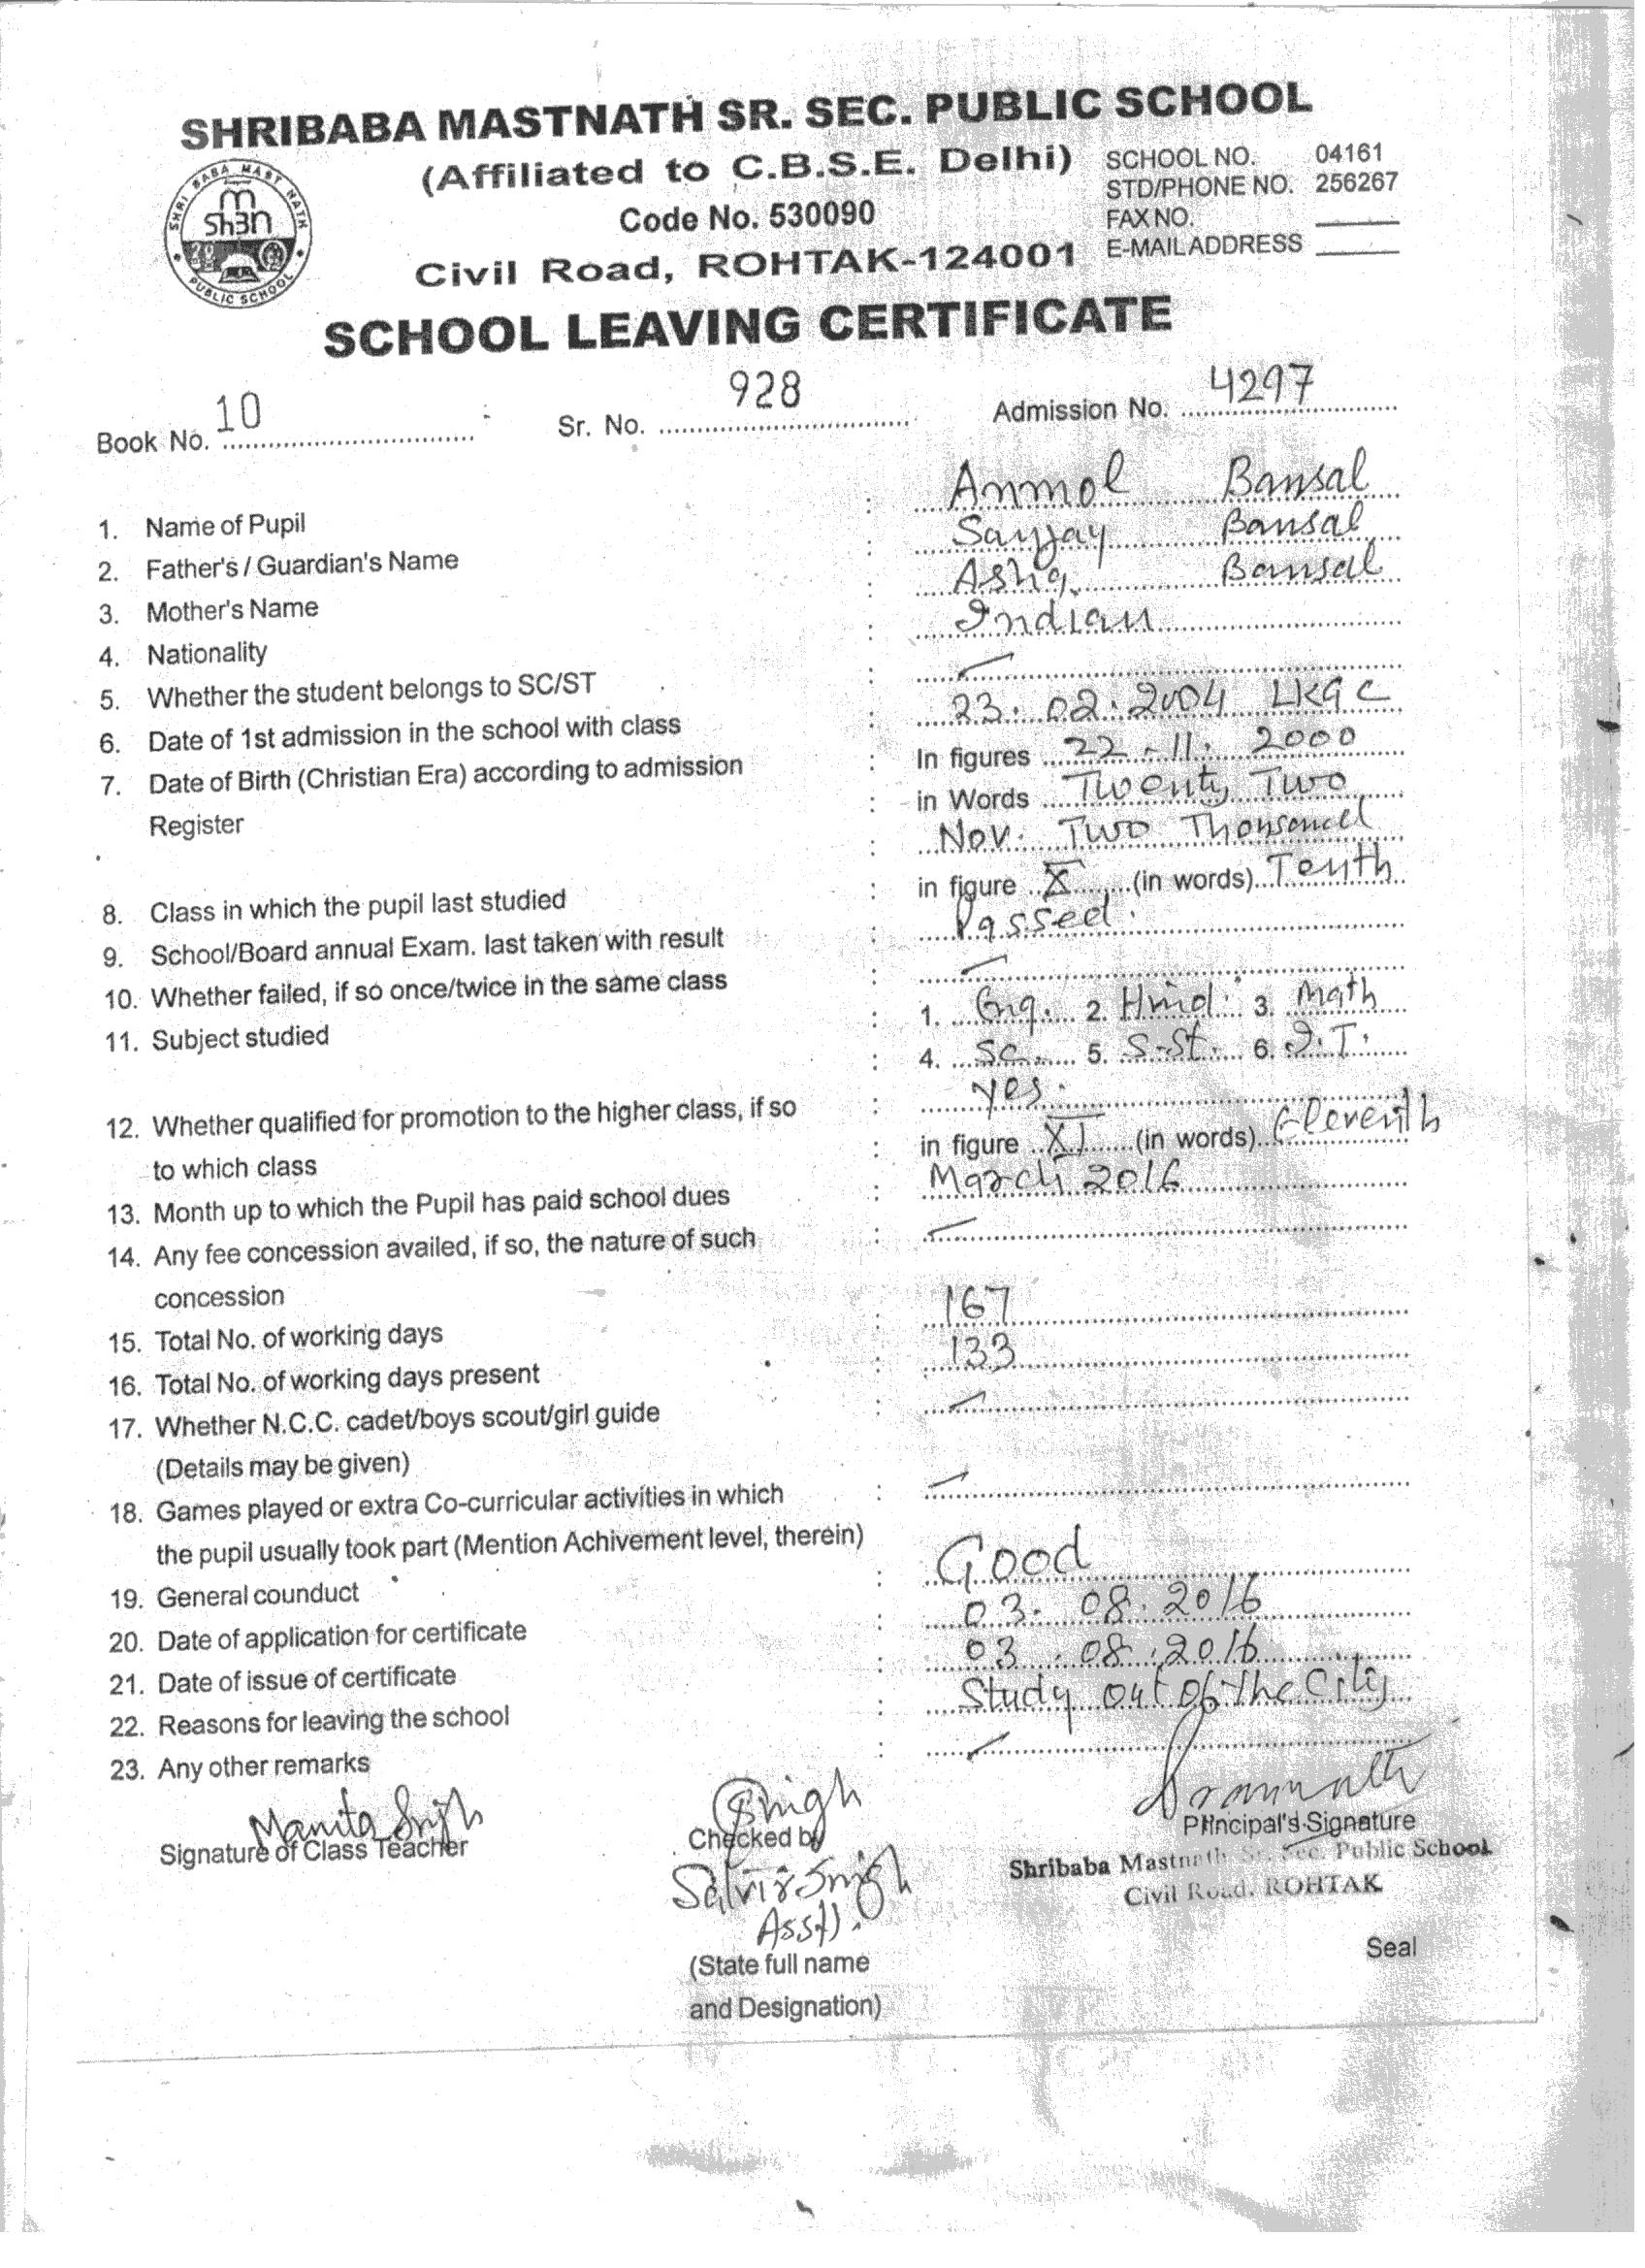 SHRIBABA MASTNATH SR. SEC. PUBLIC SCHOOL
(Affiliated to C.B.S.E. Delhi)
Code No. 530090
Civil Road, ROHTAK-124001
SCHOOL NO. 04161
STD/PHONE NO. 256267
FAX NO.
E-MAIL ADDRESS
SHRI BABA MAST NATH
Sh3n
PUBLIC SCHOOL
SCHOOL LEAVING CERTIFICATE
Book No. 10 Sr. No. 928 Admission No. 4297
1. Name of Pupil : Anmol Bansal
2. Father's / Guardian's Name : Sanjay Bansal
3. Mother's Name : Asha Bansal
4. Nationality : Indian
5. Whether the student belongs to SC/ST : —
6. Date of 1st admission in the school with class : 23.02.2004 LKG C
7. Date of Birth (Christian Era) according to admission : In figures 22-11.2000
Register : in Words Twenty Two
: Nov. Two Thousand
8. Class in which the pupil last studied : in figure X (in words) Tenth
9. School/Board annual Exam. last taken with result : Passed.
10. Whether failed, if so once/twice in the same class : —
11. Subject studied : 1. Eng. 2. Hind. 3. Math
: 4. Sc. 5. S.St. 6. I.T.
12. Whether qualified for promotion to the higher class, if so : yes.
to which class : in figure XI (in words) Eleventh
13. Month up to which the Pupil has paid school dues : March 2016
14. Any fee concession availed, if so, the nature of such : —
concession
15. Total No. of working days : 167
16. Total No. of working days present : 133
17. Whether N.C.C. cadet/boys scout/girl guide : —
(Details may be given)
18. Games played or extra Co-curricular activities in which : —
the pupil usually took part (Mention Achivement level, therein)
19. General counduct : Good
20. Date of application for certificate : 03.08.2016
21. Date of issue of certificate : 03.08.2016
22. Reasons for leaving the school : Study out of the City
23. Any other remarks : —
Manita Singh
Signature of Class Teacher
Singh
Checked by
Satvir Singh
Asstt.
(State full name
and Designation)
Principal's Signature
Shribaba Mastnath Sr. Sec. Public School
Civil Road, ROHTAK
Seal